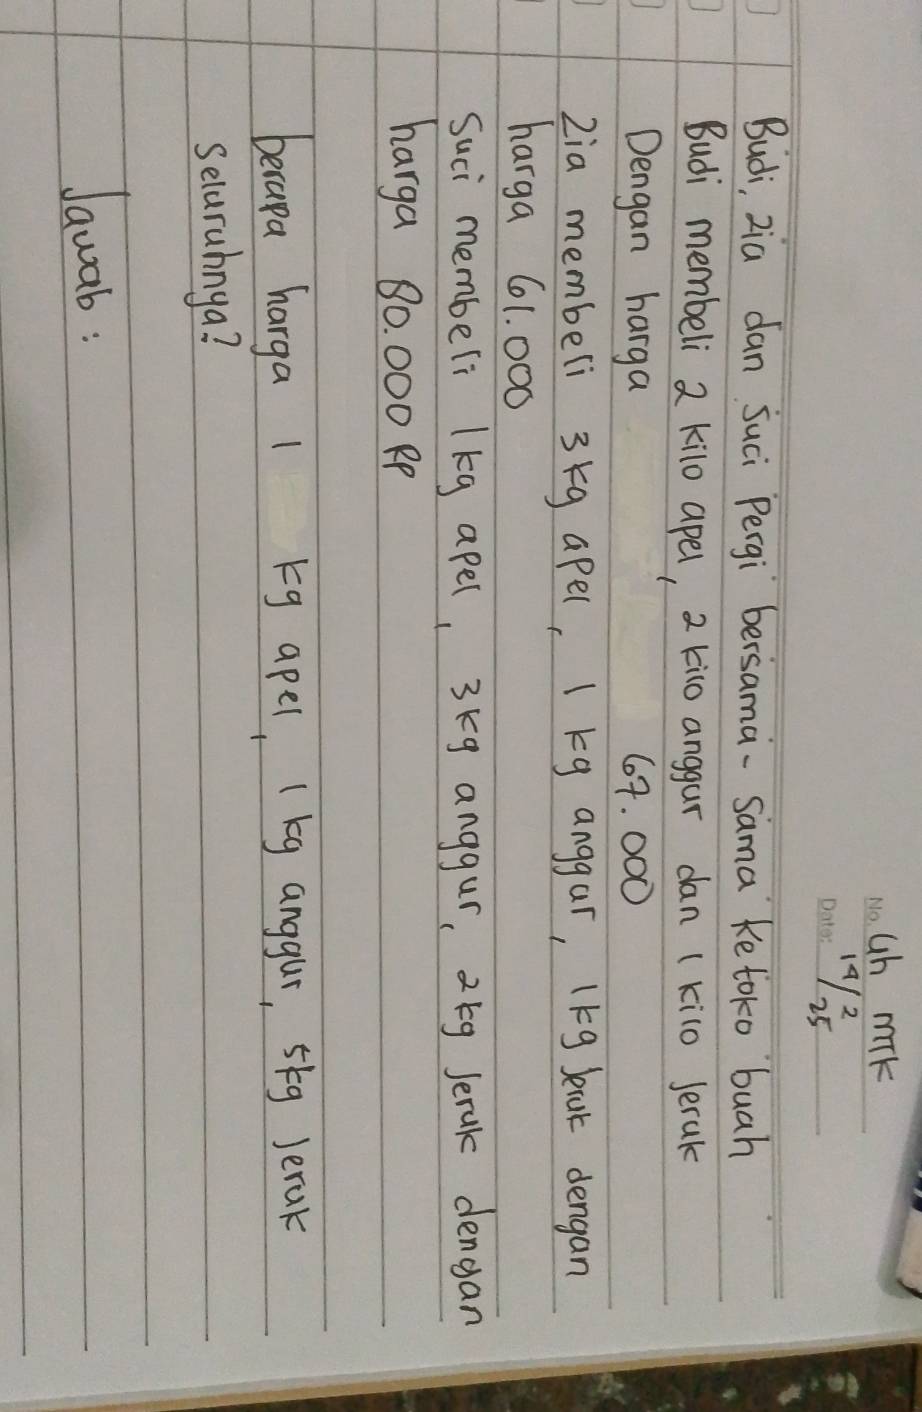 No. Uh MTK
Date: 14/2 25
Budi, Zia dan Suci Pergi bersama-sama ke toko buah
Budi membeli 2 kilo apel, 2 kilo anggur dan 1 kilo Jeruk
Dengan harga 67.000
Zia membeli 3 kg apel, 1 kg anggur, 1 kg Jeruk dengan
harga 61.000
Suci membeli 1 kg apel, 3 kg anggur, 2 kg Jeruk dengan
harga 80.000 Rp
berapa harga 1 kg apel, 1 kg anggur, 5 kg Jeruk
Seluruhnya?
Jawab :